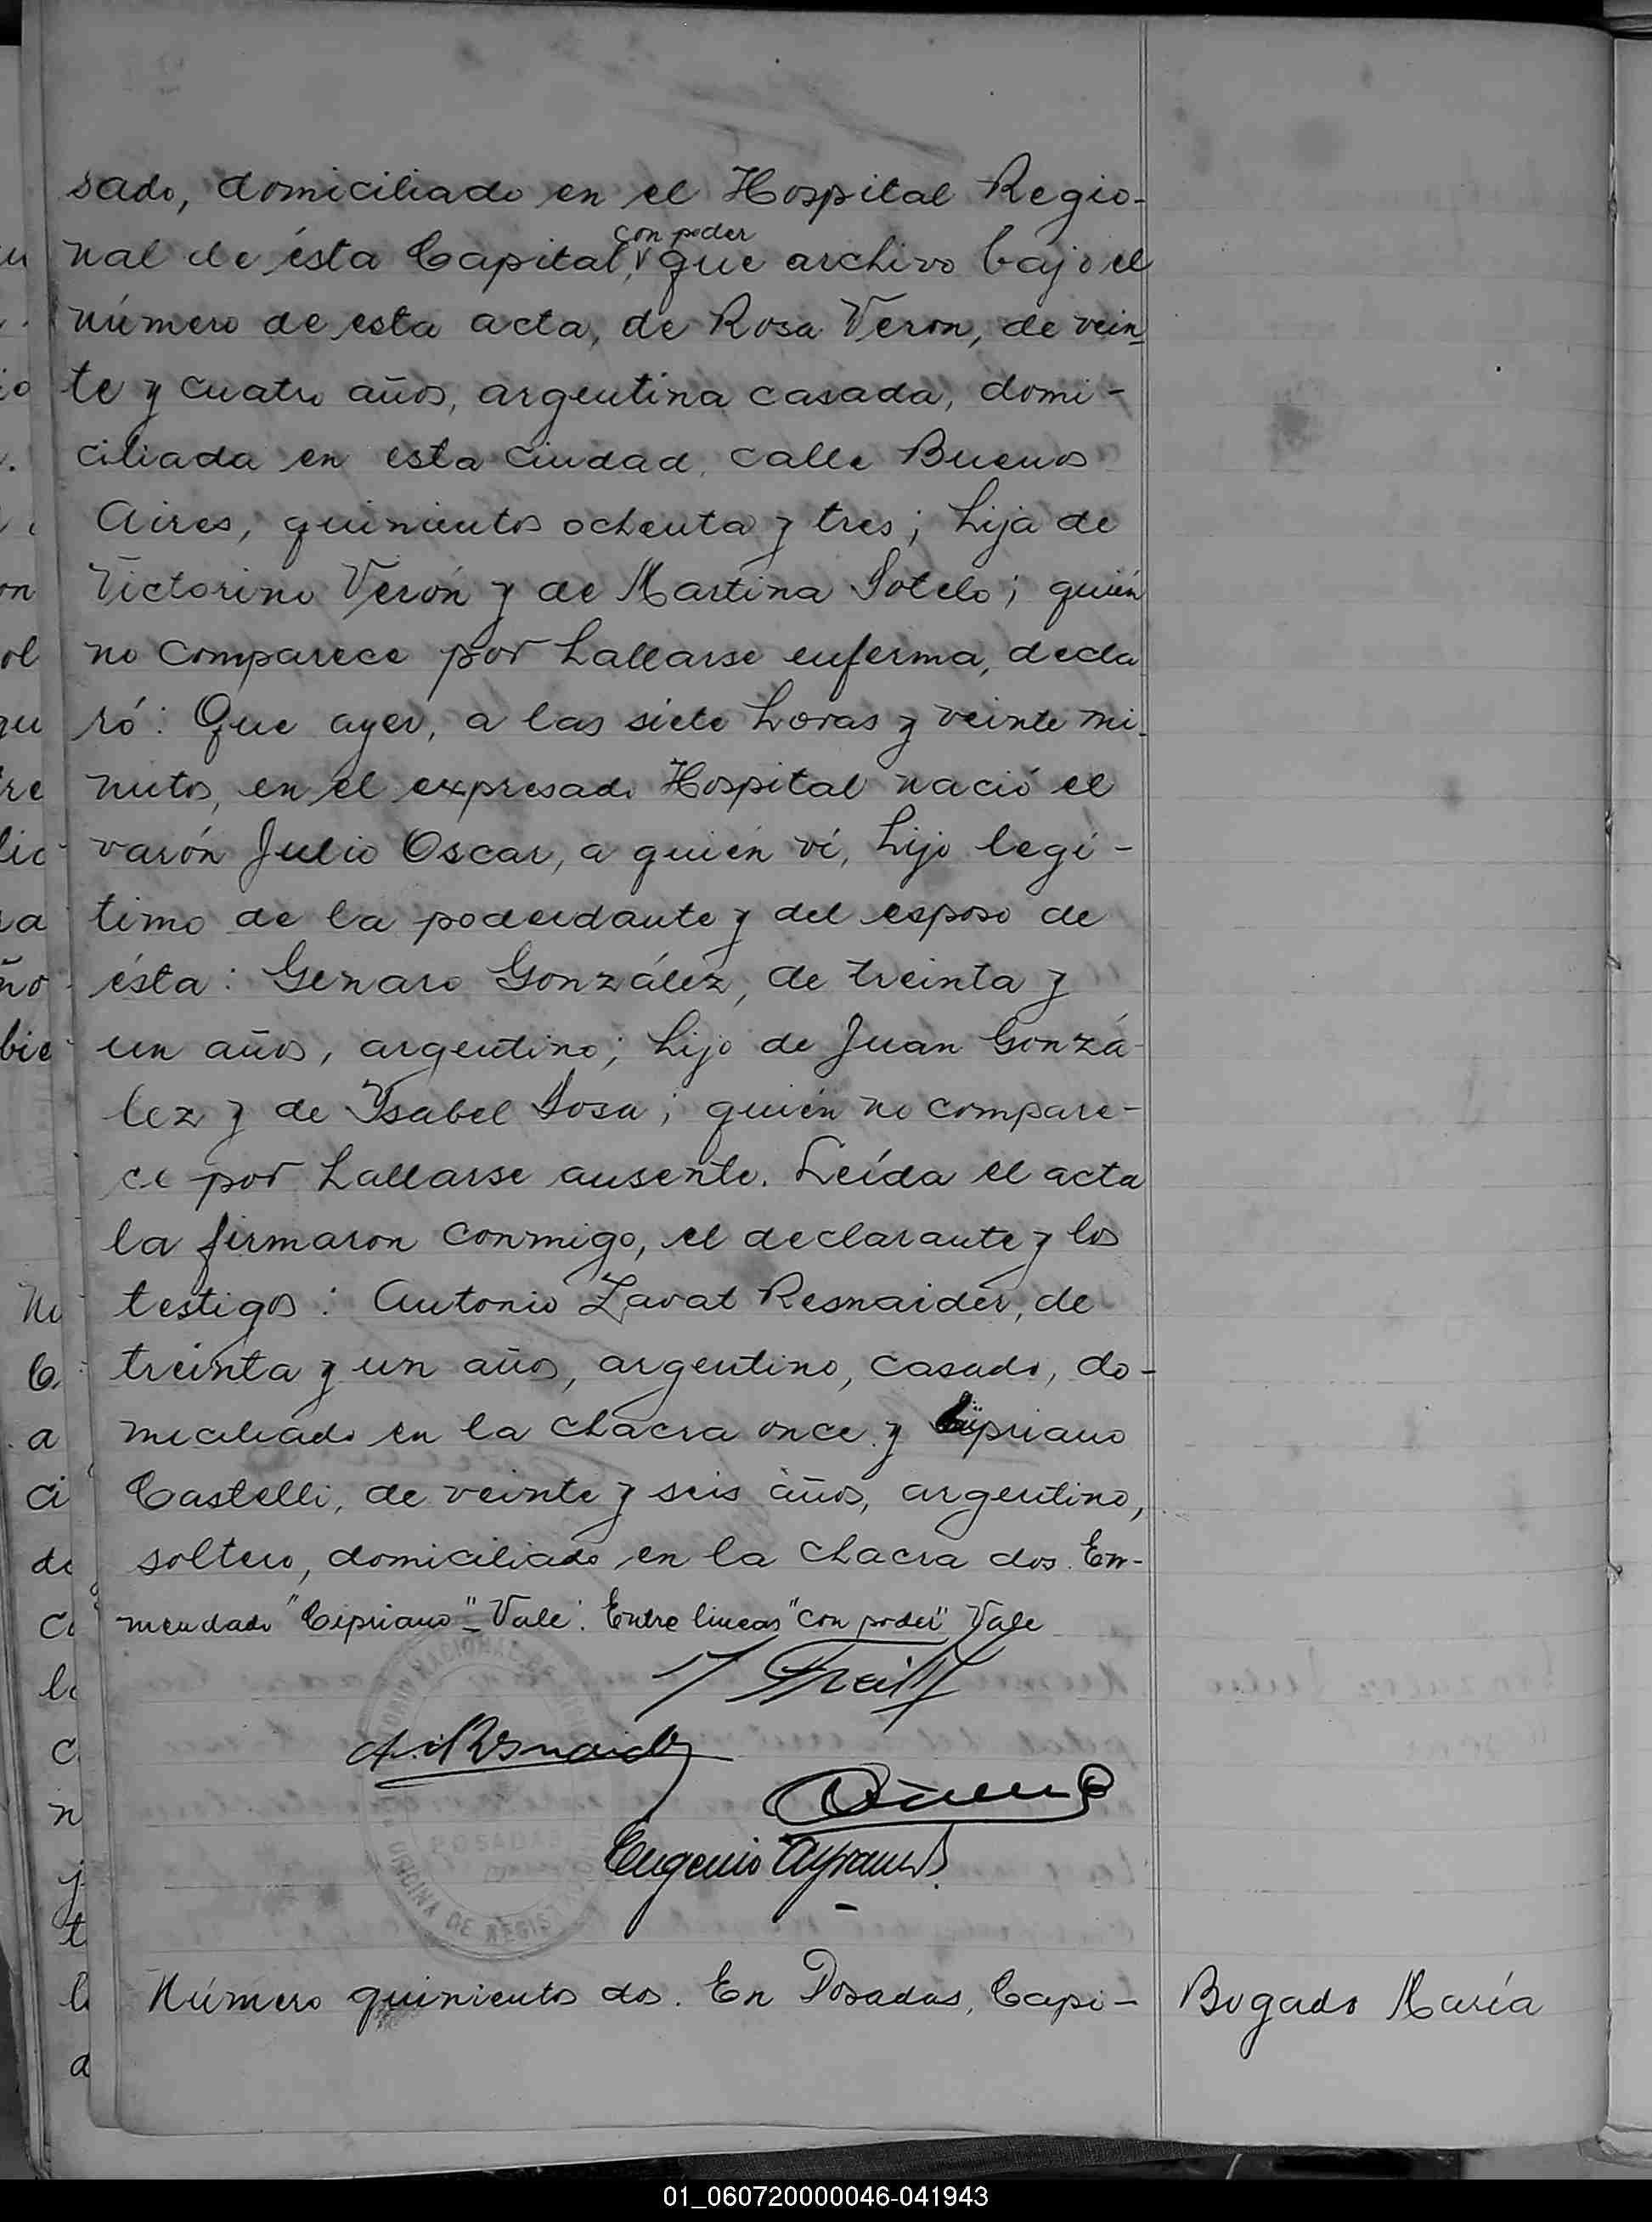 sado, domiciliado en el Hospital Regio-
con poder
nal de ésta Capital, que archivo bajo el
número de esta acta, de Rosa Veron, de vein
te y cuatro años, argentina casada, domi-
ciliada en esta ciudad, calle Buenos
Aires, quinientos ochenta y tres; hija de
Victorino Verón y de Martina Sotelo; quién
no comparece por hallarse enferma, decla
ró: Que ayer, a las siete horas y veinte mi-
nutos, en el expresado Hospital nació el
varón Julio Oscar, a quién ví, hijo legí-
timo de la poderdante y del esposo de
ésta: Genaro González, de treinta y
un años, argentino; hijo de Juan Gonzá-
lez y de Ysabel Sosa; quién no compare-
ce por hallarse ausente. Leída el acta
la firmaron conmigo, el declarante y los
testigos: Antonio Zavat Resnaider, de
treinta y un años, argentino, casado, do-
miciliado en la chacra once y Cipriano
Castelli, de veinte y seis años, argentino,
soltero, domiciliado en la chacra dos. En-
mendado "Cipriano" - Vale. Entre lineas "con poder" Vale
POSADAS
OFICINA DE REGISTRO
Eugenio
Número quinientos dos. En Posadas, Capi-
Bogado María
01_060720000046-041943